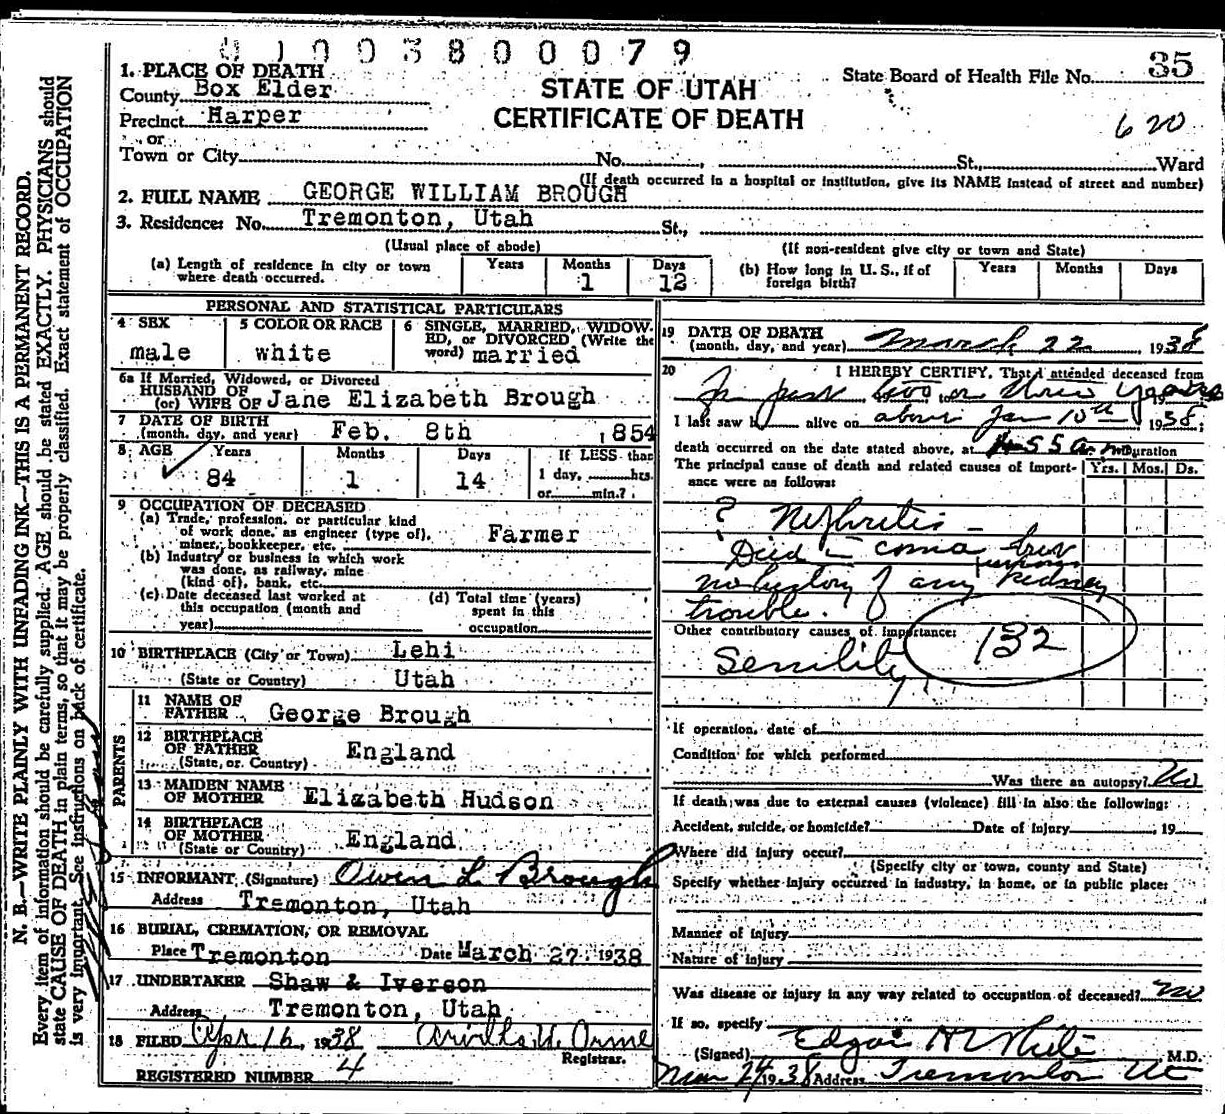 0100380079
35
State Board of Health File No.
620
STATE OF UTAH
CERTIFICATE OF DEATH
1. PLACE OF DEATH
County Box Elder
Precinct Harper
or
Town or City No. , St., Ward
(If death occurred in a hospital or institution, give its NAME instead of street and number)
2. FULL NAME GEORGE WILLIAM BROUGH
3. Residence: No. Tremonton, Utah St.,
(Usual place of abode) (If non-resident give city or town and State)
(a) Length of residence in city or town where death occurred. Years Months 1 Days 12
(b) How long in U. S., if of foreign birth? Years Months Days
PERSONAL AND STATISTICAL PARTICULARS
4 SEX male
5 COLOR OR RACE white
6 SINGLE, MARRIED, WIDOWED, or DIVORCED (Write the word) married
6a If Married, Widowed, or Divorced
HUSBAND OF
(or) WIFE OF Jane Elizabeth Brough
7 DATE OF BIRTH
(month, day, and year) Feb. 8th 1854
8 AGE Years 84 Months 1 Days 14
If LESS than
1 day, hrs.
or min.?
9 OCCUPATION OF DECEASED
(a) Trade, profession, or particular kind
of work done, as engineer (type of),
miner, bookkeeper, etc. Farmer
(b) Industry or business in which work
was done, as railway, mine
(kind of), bank, etc.
(c) Date deceased last worked at
this occupation (month and
year)
(d) Total time (years)
spent in this
occupation
10 BIRTHPLACE (City or Town) Lehi
(State or Country) Utah
PARENTS
11 NAME OF
FATHER George Brough
12 BIRTHPLACE
OF FATHER England
(State, or Country)
13 MAIDEN NAME
OF MOTHER Elizabeth Hudson
14 BIRTHPLACE
OF MOTHER England
(State or Country)
15 INFORMANT (Signature) Owen L Brough
Address Tremonton, Utah
16 BURIAL, CREMATION, OR REMOVAL
Place Tremonton Date March 27, 1938
17 UNDERTAKER Shaw & Iverson
Address Tremonton, Utah
18 FILED Apr 16, 1938 Orme
Registrar.
REGISTERED NUMBER 4
19 DATE OF DEATH
(month, day, and year) March 22, 1938
20 I HEREBY CERTIFY, That I attended deceased from
In past two or three years
I last saw h alive on about Jan 10th 1938;
death occurred on the date stated above, at 55 a. m.
Duration
The principal cause of death and related causes of importance were as follows: Yrs. Mos. Ds.
? Nephritis -
Died in coma but
no history of any previous kidney
trouble.
Other contributory causes of importance:
132
Senility
If operation, date of
Condition for which performed
Was there an autopsy? No
If death was due to external causes (violence) fill in also the following:
Accident, suicide, or homicide? Date of injury , 19
Where did injury occur?
(Specify city or town, county and State)
Specify whether injury occurred in industry, in home, or in public place:
Manner of injury
Nature of injury
Was disease or injury in any way related to occupation of deceased? no
If so, specify
(Signed) Edgar H White M.D.
Mar 24 1938 Address Tremonton Ut
N. B.—WRITE PLAINLY WITH UNFADING INK—THIS IS A PERMANENT RECORD.
Every item of information should be carefully supplied. AGE should be stated EXACTLY. PHYSICIANS should
state CAUSE OF DEATH in plain terms, so that it may be properly classified. Exact statement of OCCUPATION
is very important. See instructions on back of certificate.